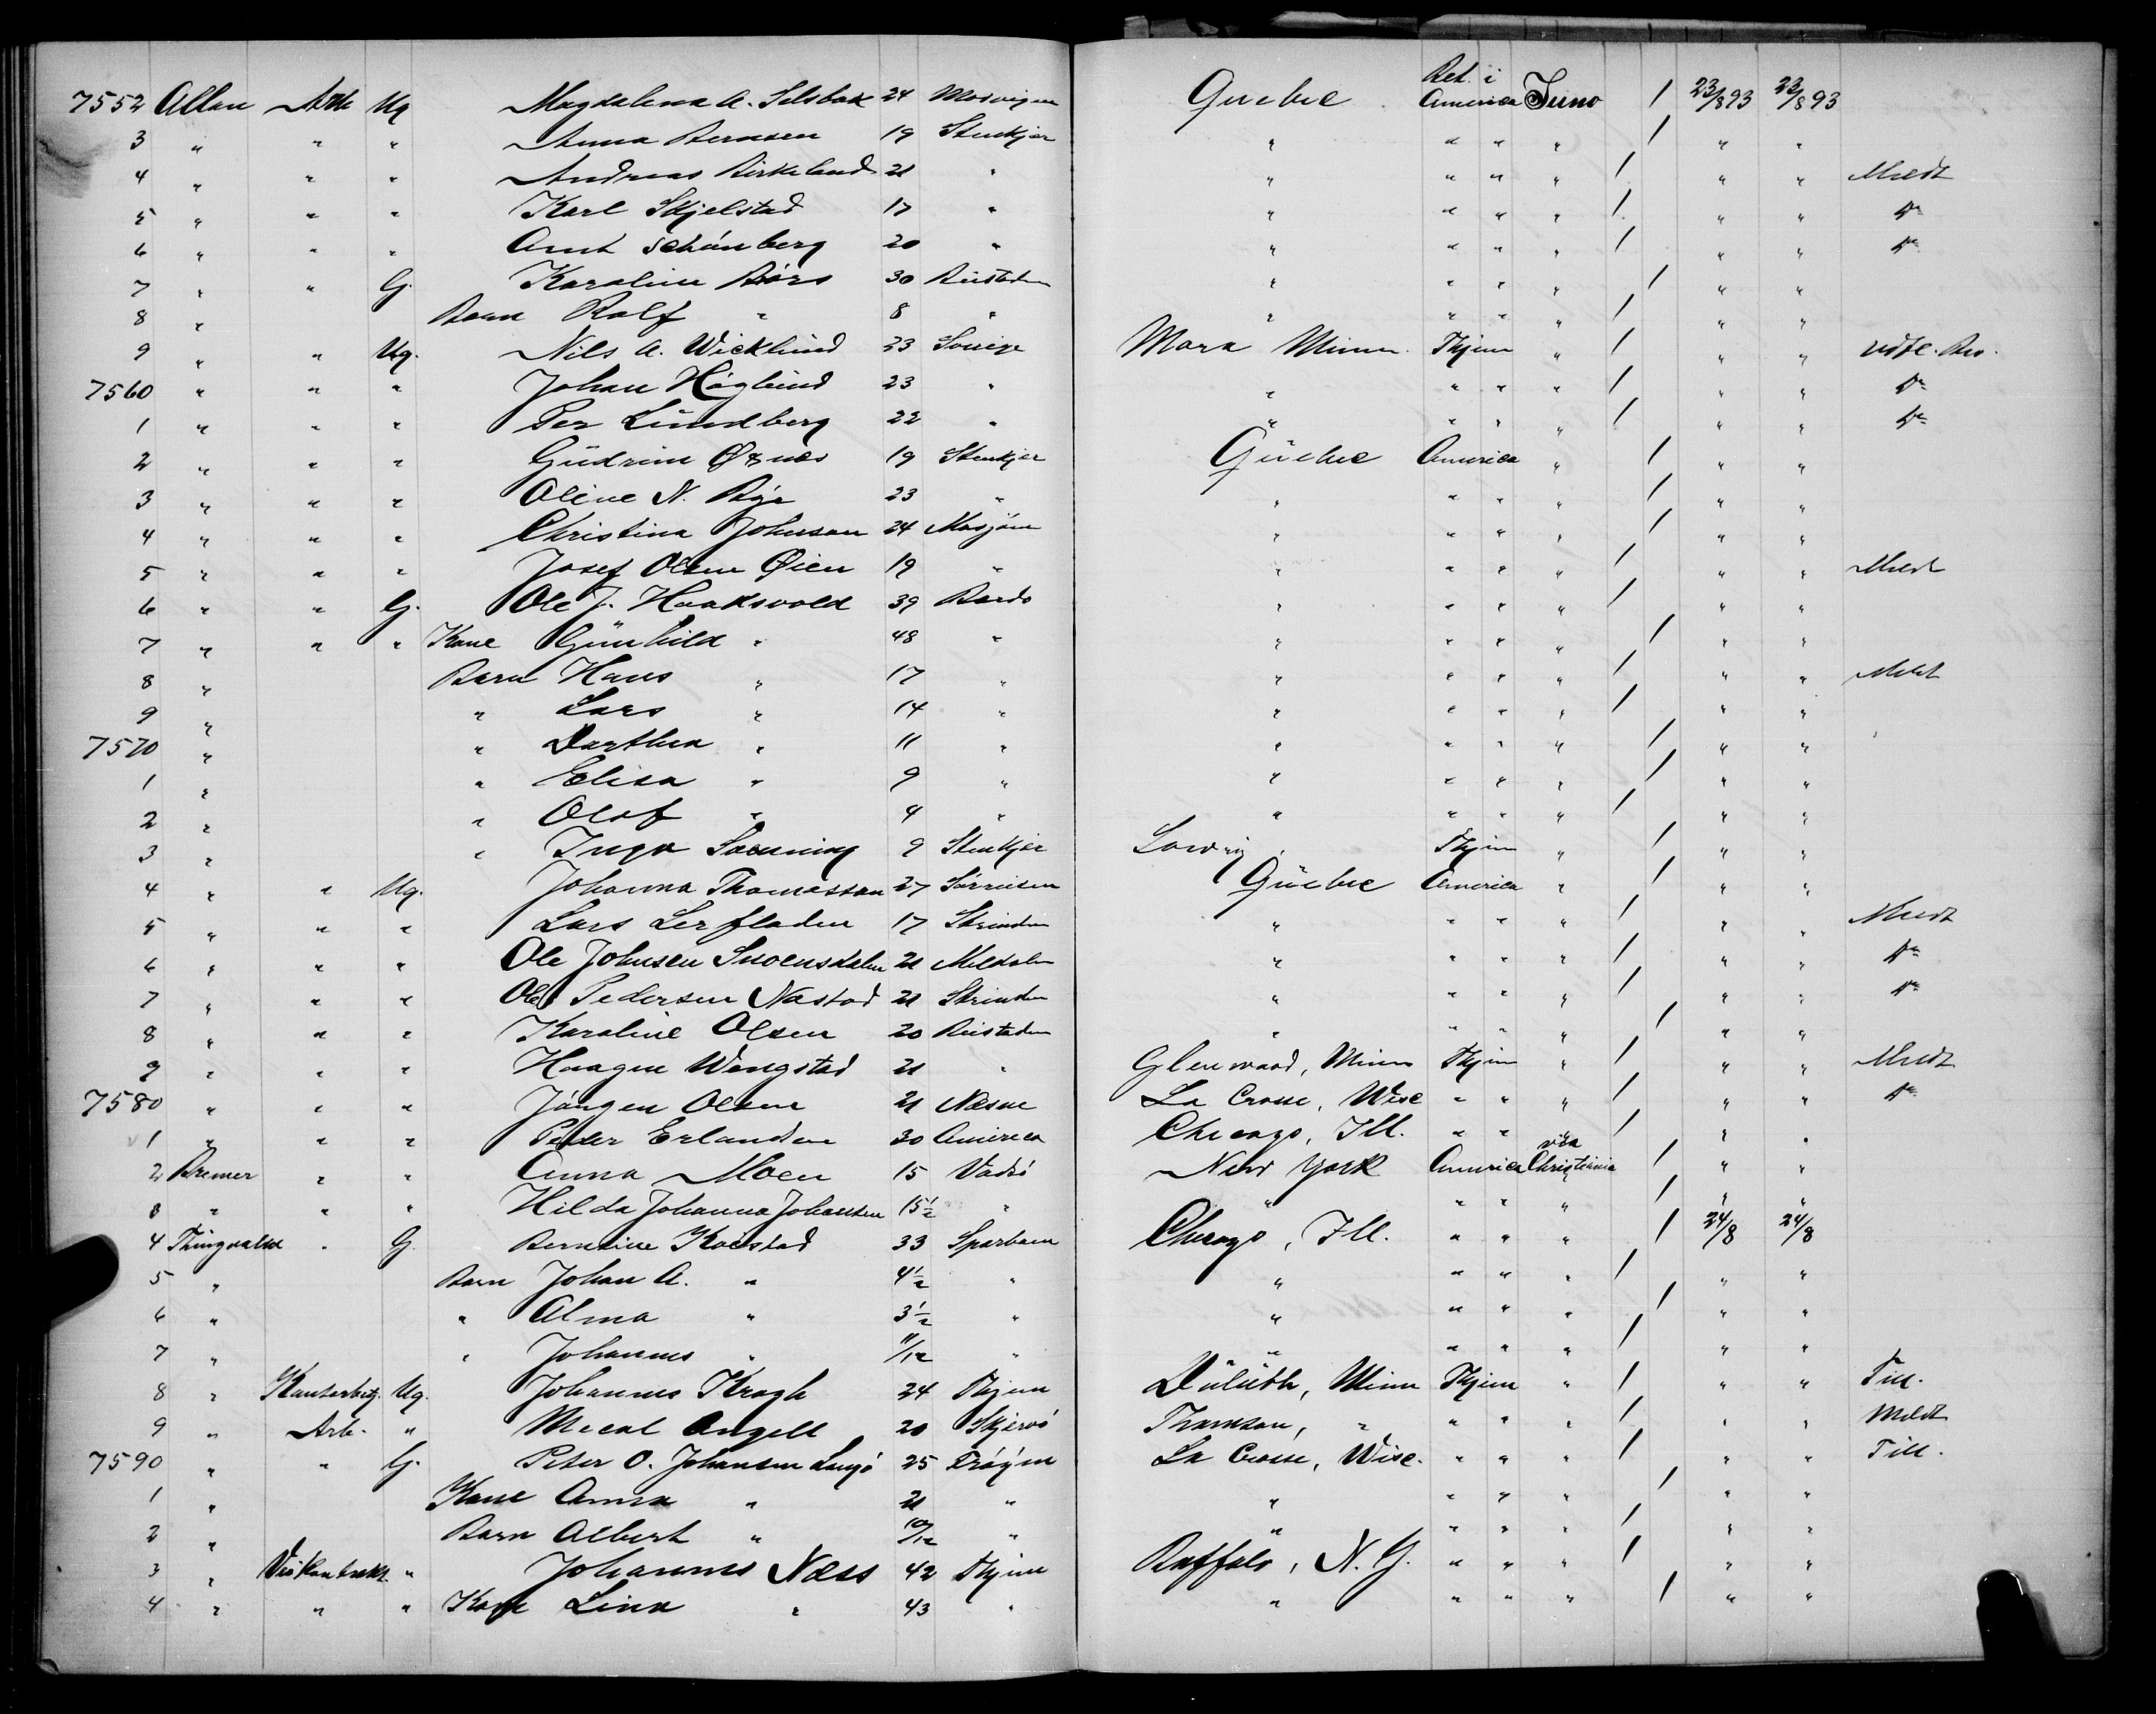 7552 Allan Arb Ug Magdalena A. Selsbak 24 Mosvigen Quebec Bet. i America Juno / 23/8 93 23/8 93
3 " " " Anna Bernsen 19 Stenkjær " " " " / " "
4 " " " Andreas Birkeland 21 " " " " " / " " Meldt
5 " " " Karl Skjelstad 17 " " " " " / " " Do
6 " " " Arnt Schönberg 20 " " " " " / " " Do
7 " " G. Karoline Börs 30 Beistaden " " " " / " "
8 " Barn Rolf " 8 " " " " " / " "
9 " " Ug. Nils A. Wicklund 23 Sverige Mora Minn. Thjem " / " " udfl. Bev.
7560 " " " Johan Höglund 23 " " " " " / " " Do
1 " " " Per Lundberg 22 " " " " " / " " Do
2 " " " Gudrun Øsnes 19 Stenkjær Quebec America " / " "
3 " " " Oline N. Bye 23 " " " " " / " "
4 " " " Christina Johnsen 24 Mosjöen " " " " / " "
5 " " " Josef Olsen Øien 19 " " " " " / " " Meldt
6 " " G. Ole J. Haaksvold 39 Bardo " " " " / " "
7 " " " Kone Gunhild " 48 " " " " " / " "
8 " Barn Hans " 17 " " " " " / " " Meldt
9 " " Lars " 14 " " " " " / " "
7570 " " Dorthea " 11 " " " " " / " "
1 " " Elisa " 9 " " " " " / " "
2 " " Olaf " 4 " " " " " / " "
3 " " Inga 9 Stenkjær Thjem " / " "
4 " " Ug. Johanna Thomassen 27 Sörreisen Quebec America " / " "
5 " " " Lars Lerfladen 17 Strinden " " " " / " " Meldt
6 " " " Ole Johnsen 21 Meldalen " " " " / " " Do
7 " " " Ole Pedersen Næstad 21 Strinden " " " " / " " Do
8 " " " Karoline Olsen 20 Beistaden " " " " / " "
9 " " " Haagen Wengstad 21 " Glenwood, Minn Thjem " / " " Meldt
7580 " " " Jörgen Olsen 21 Næsne La Crosse, Wisc " " " / " " Do
1 " " " Peder Erlandsen 30 America Chicago, Ill. " " " / " "
2 Bremer " " Anna Moen 15 Vadsö New York America via Christiania / " "
3 " " " Hilda Johanna Johansen 15 1/2 " " " " " / " "
4 Thingvalla " G. Berntine Kolstad 33 Sparbuen Chicago, Ill. " " " / 24/8 24/8
5 " Barn Johan A. " 4 1/2 " " " " " / " "
6 " " Alma " 3 1/2 " " " " " / " "
7 " " Johannes " 11/12 " " " " " / " "
8 " Kontorbetj. Ug. Johannes Krogh 24 Thjem Duluth, Minn Thjem " / " " Till.
9 " Arb. " Meeal Angell 20 Skjervö Thomson, " " " " / " " Meldt
7590 " " G. Peter O. Johansen Langö 25 Fröyen La Crosse, Wisc. " " " / " " Till.
1 " Kone Anna " 21 " " " " " / " "
2 " Barn Albert " 10/12 " " " " " / " "
3 " " Johannes Næss 42 Thjem Buffalo, N.Y. " " " / " "
4 " " " Kone Lina " 43 " " " " " / " "